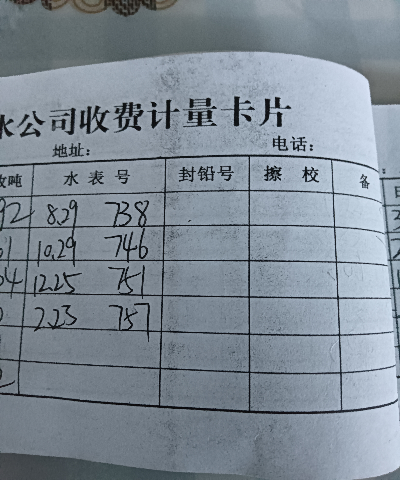 水公司收费计量卡片
地址: 电话:
吨 水表号 封铅号 擦校 备
92 8.29 738
61 10.29 746
04 12.25 751
2.23 757